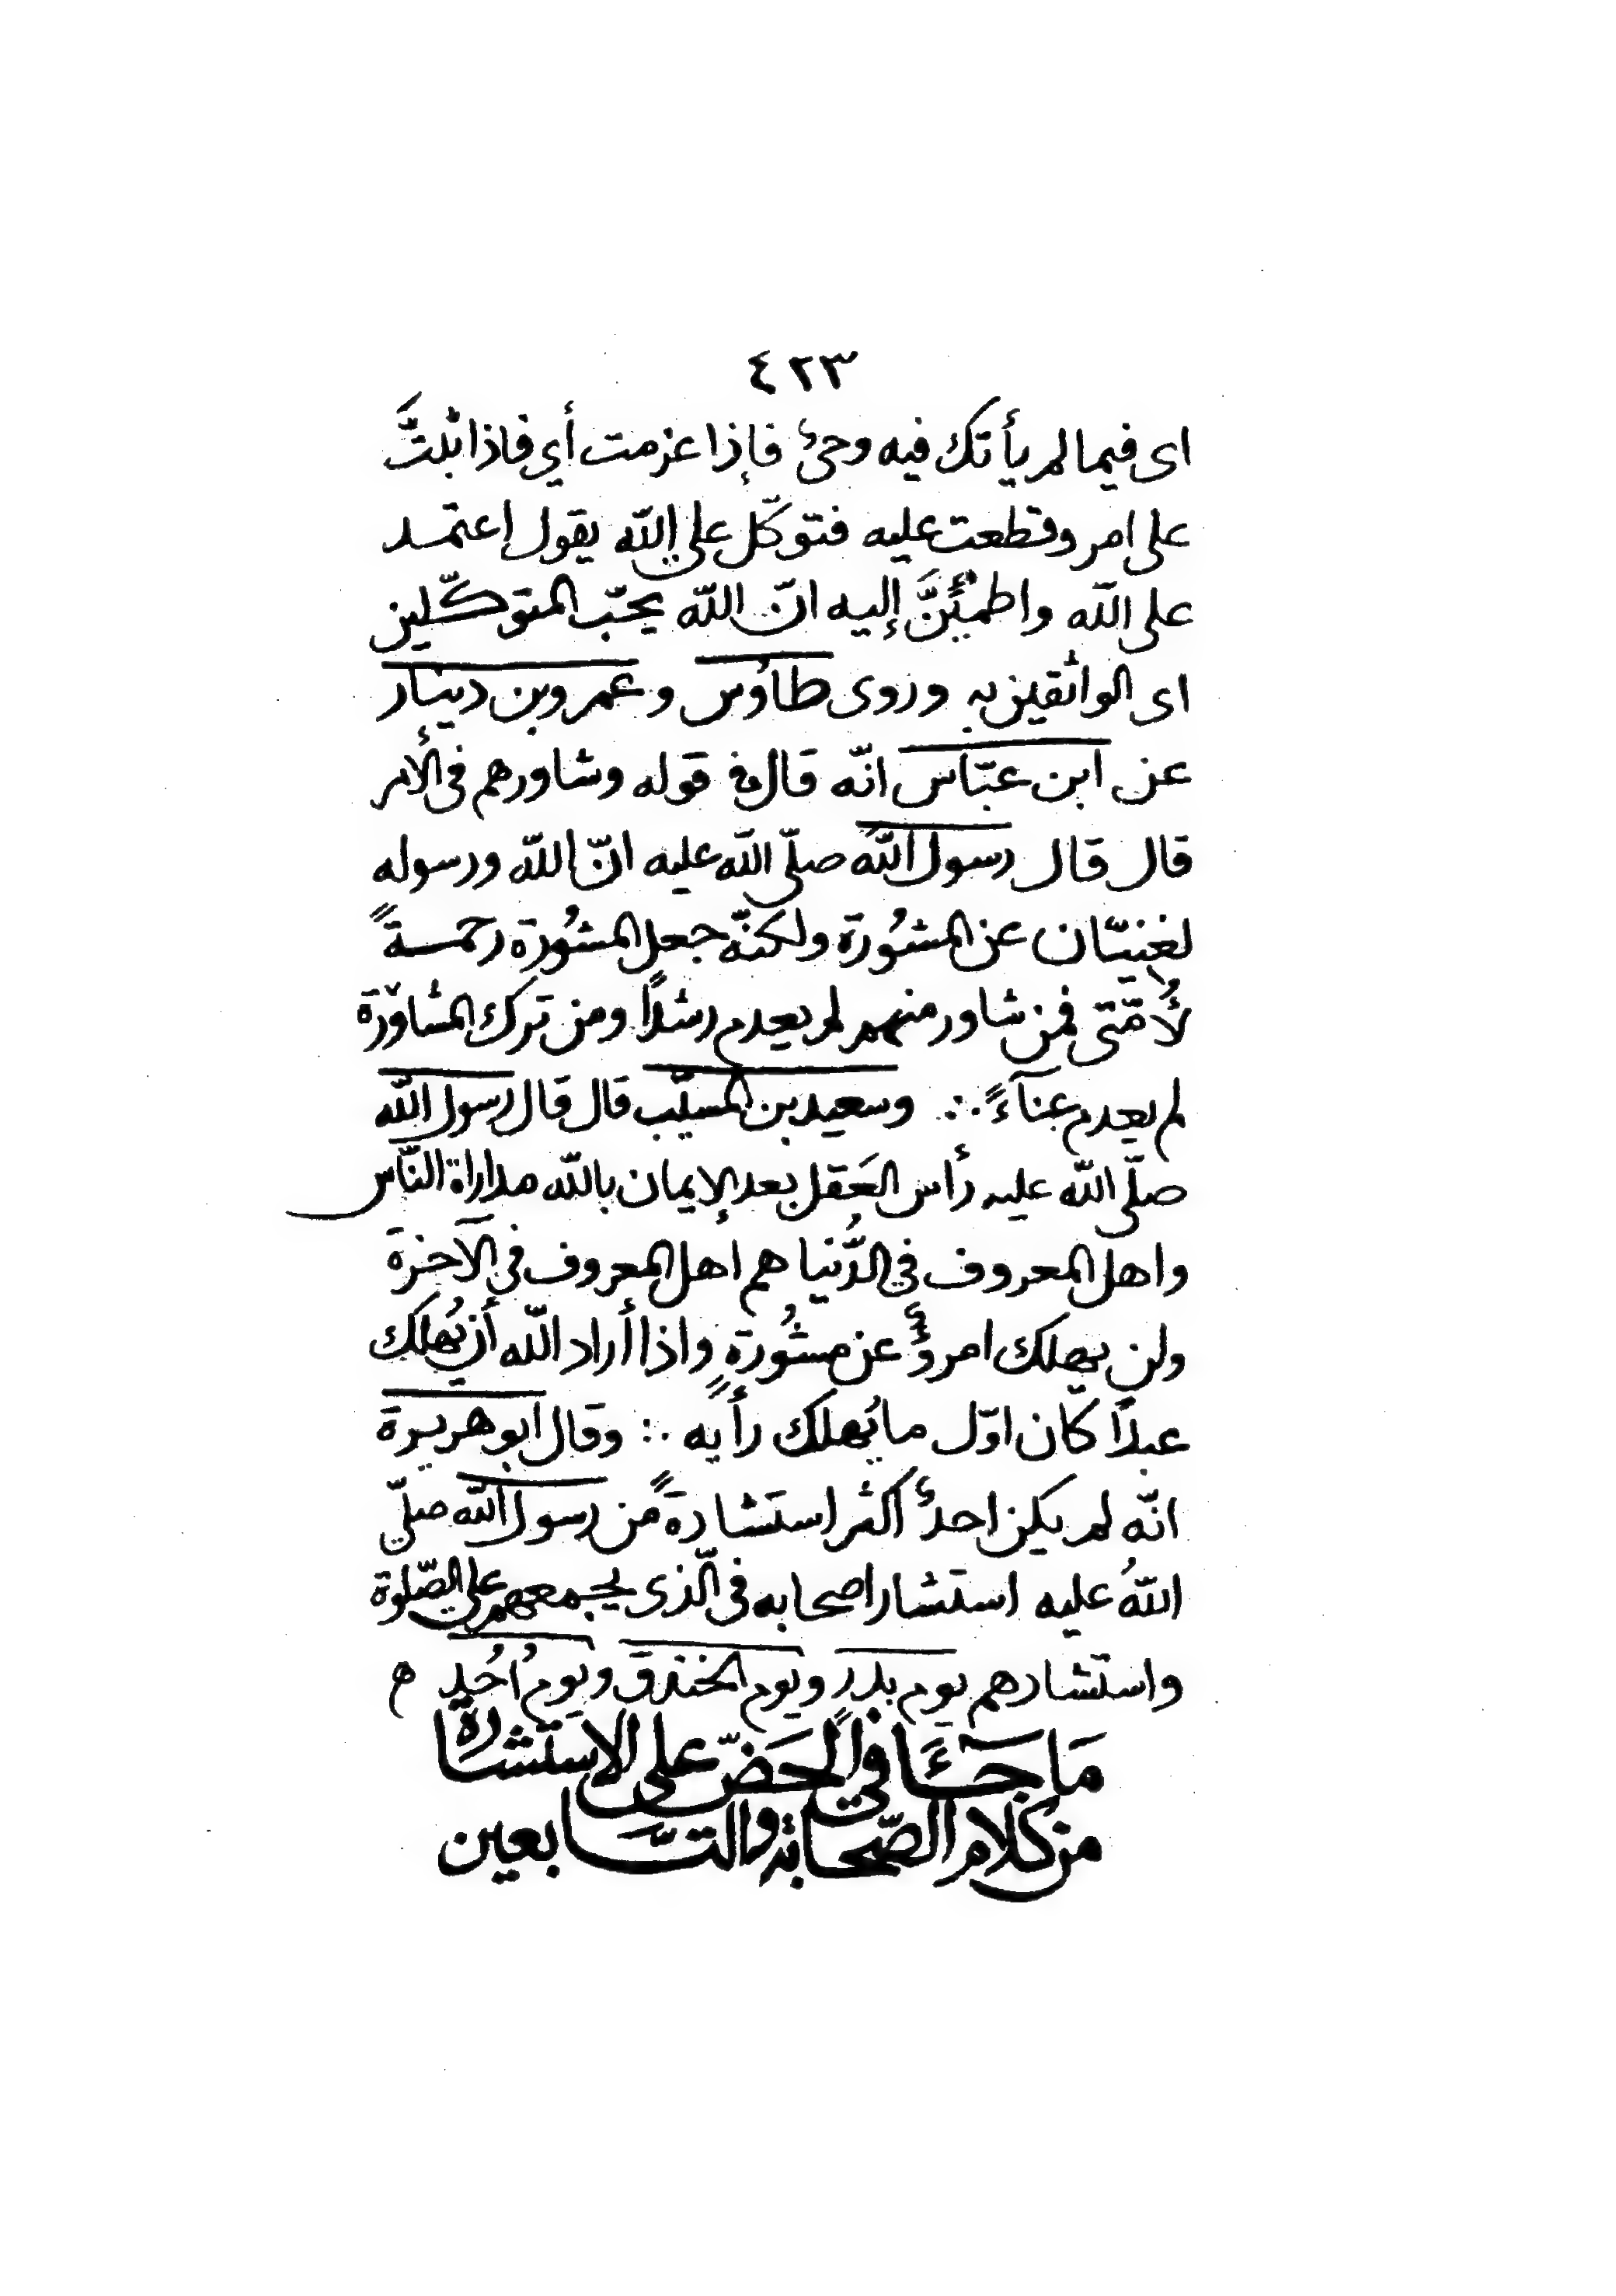 ٤٢٣
اى فيما لم يأتك فيه وحىٌ فإذا عزمت أي فاذا ثبتَّ
على امر وقطعت عليه فتوكّل على الله يقول إعتمد
على الله واطمئنَّ إليه انّ الله يحبّ المتوكّلين
اى الواثقين به وروى طاوُس وعمرو بن دينار
عن ابن عبّاس انّه قال في قوله وشاورهم في الأمر
قال قال رسول الله صلّى الله عليه انّ الله ورسوله
لغنيّان عن المشُورة ولكنّه جعل المشُورة رحمةً
لأُمّتى فمن شاور منهم لم يعدم رشدًا ومن ترك المشاوَرة
لم يعدم عنآءً ∴ وسعيد بن المسيّب قال قال رسول الله
صلّى الله عليه رأس العَقل بعد الإيمان بالله مداراة النّاس
واهل المعروف في الدُّنيا هم اهل المعروف في الآخرة
ولن يهلك امرؤٌ عن مشُورةٍ واذا أراد الله أن يُهلك
عبدًا كان اوّل ما يُهلك رأيه ∴ وقال ابو هريرة
انّه لم يكن احدٌ أكثر استشارةً من رسول الله صلّى
اللهُ عليه استشار اصحابه في الّذى يجمعهم على الصّلوة
واستشارهم يوم بدر ويوم الخندق ويومُ اُحُدٍ ه
مَا جَآءَ في الحَضّ على الاستشارة
من كلام الصّحابة والتّابعين